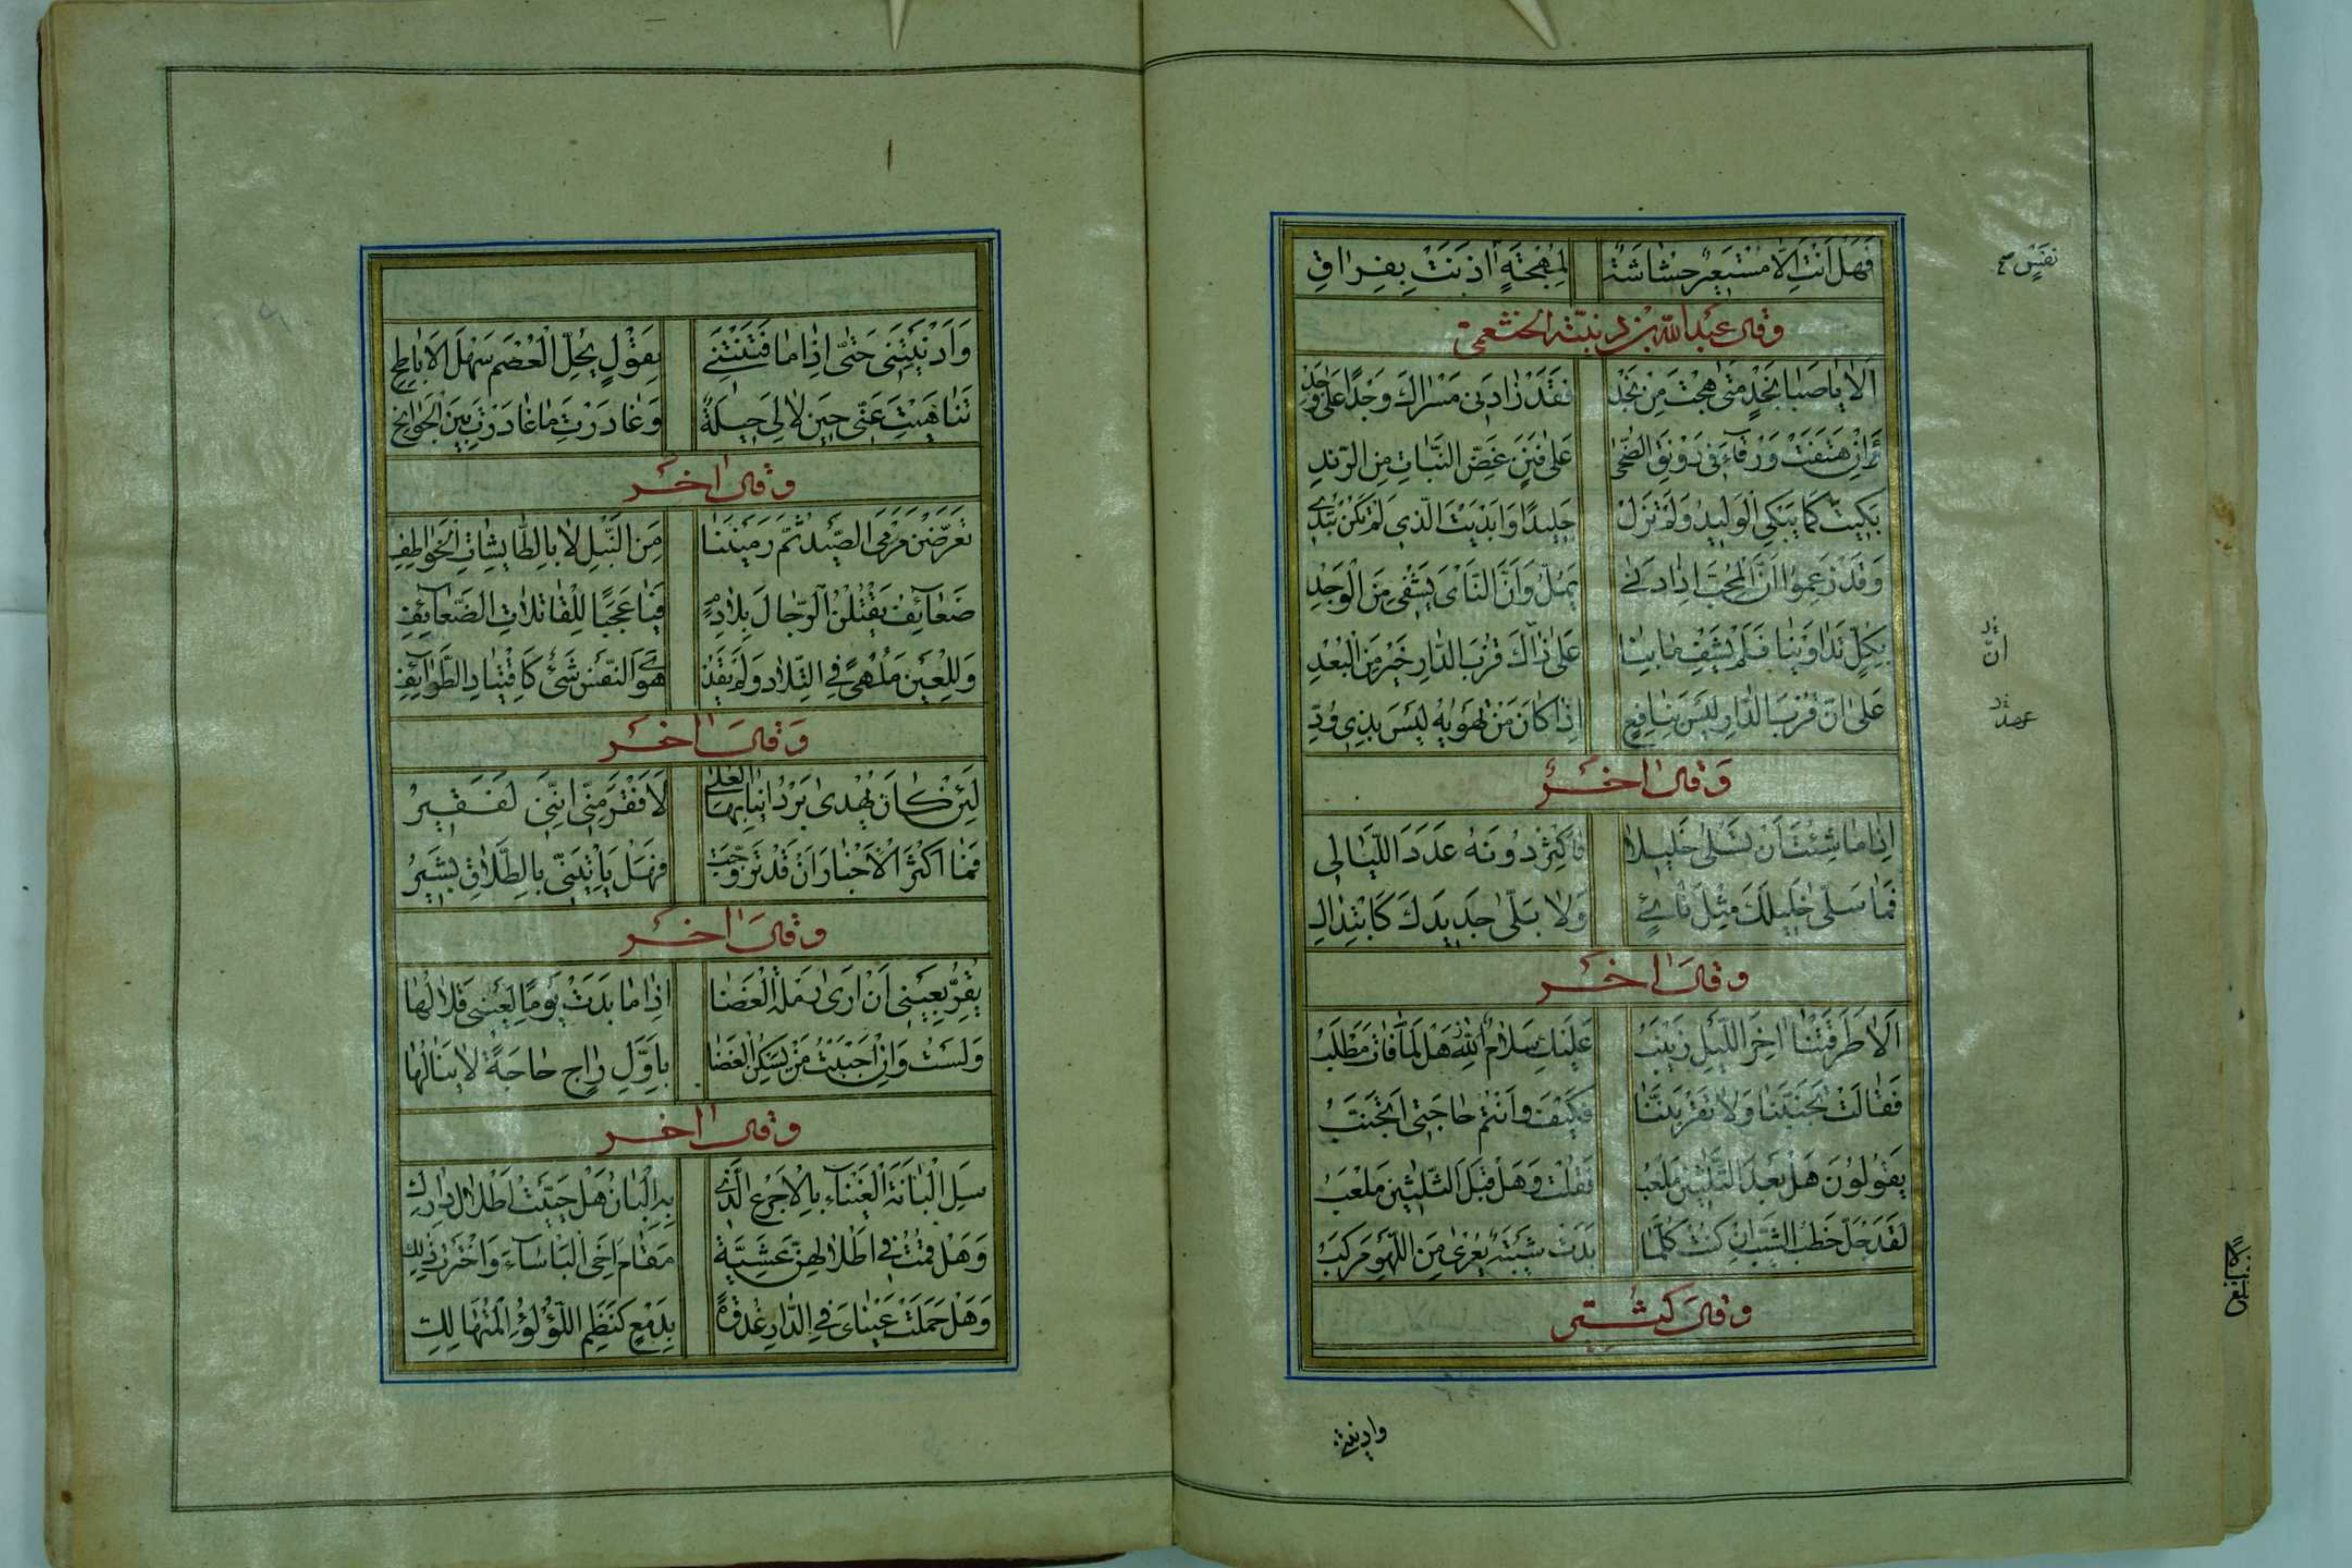 فَهَلْ اَنْتِ اِلَّا مُسْتَعِيرٌ حُشَاشَةً لِمُهْجَةٍ اٰذَنَتْ بِفِرٰاقِ
نفس صح
وقال عبد الله بن دمينة الخثعمي
اَلَا يٰا صَبٰا نَجْدٍ مَتٰى هِجْتَ مِنْ نَجْدٍ فَقَدْ زٰادَنِى مَسْرٰاكَ وَجْدًا عَلٰى وَجْدِ
وَاِنْ هَتَفَتْ وَرْقٰاءُ فِى رَوْنَقِ الضُّحٰى عَلٰى فَنَنٍ غَضِّ النَّبٰاتِ مِنَ الرَّنْدِ
بَكَيْتَ كَمٰا يَبْكِى الْوَلِيدُ وَلَمْ تَزَلْ جَلِيدًا وَاَبْدَيْتَ الَّذِى لَمْ تَكُنْ تُبْدِى
وَقَدْ زَعِمُوا اَنَّ الْمُحِبَّ اِذٰا دَنٰى يَمَلُّ وَاَنَّ النَّاْىَ يَشْفِى مِنَ الْوَجْدِ
بِكُلٍّ تَدٰاوَيْنٰا فَلَمْ يَشْفِ مٰا بِنٰا عَلٰى ذٰاكَ قُرْبُ الدّٰارِ خَيْرٌ مِنَ الْبُعْدِ
انّ
عَلٰى اَنَّ قُرْبَ الدّٰارِ لَيْسَ بِنٰافِعٍ اِذٰا كٰانَ مَنْ تَهْوٰيهُ لَيْسَ بِذِى وُدِّ
عهد
وَقٰالَ اٰخَرُ
اِذٰا مٰا شِئْتَ اَنْ تَسْلٰى خَلِيلًا فَاَكْثِرْ دُونَهُ عَدَدَ اللَّيٰالِى
فَمٰا سَلّٰى خَلِيلَكَ مِثْلُ نَاْىٍ وَلٰا بَلّٰى جَدِيدَكَ كَابْتِذٰالِ
وَقٰالَ اٰخَر
اَلٰا طَرَقَتْنٰا اٰخِرَ اللَّيْلِ زَيْنَبُ عَلَيْكِ سَلٰامُ اللّٰهِ هَلْ لِمٰا فٰاتَ مَطْلَبُ
فَقٰالَتْ تَجَنَّبْنٰا وَلٰا تَقْرَبَنَّنٰا فَكَيْفَ وَاَنْتُمْ حٰاجَتِى اَتَجَنَّبُ
يَقُولُونَ هَلْ بَعْدَ الثَّلٰثِينَ مَلْعَبٌ فَقُلْتُ وَهَلْ قَبْلَ الثَّلٰثِينَ مَلْعَبُ
لَقَدْ جَلَّ خَطْبُ الشَّيْبِ اِنْ كُنْتُ كُلَّمٰا بَدَتْ شَيْبَةٌ يُعْرٰى مِنَ اللَّهْوِ مَرْكَبُ
وقال كثير
وادنيتني
وَاَدْنَيْتِنِى حَتّٰى اِذٰا مٰا فَتَنْتِنِى بِقَوْلٍ يُحِلُّ الْعُصْمَ سَهْلَ الْاَبٰاطِحِ
تَنٰاهَيْتِ عَنِّى حِينَ لٰا لِىَ حِيلَةٌ وَغٰادَرْتِ مٰا غٰادَرْتِ بَيْنَ الْجَوٰانِحِ
وقال اٰخر
تَعَرَّضْنَ مَرْمَى الصَّيْدِ ثُمَّ رَمَيْنَنٰا مِنَ النَّبْلِ لٰا بِالطّٰايِشٰاتِ الْخَوٰاطِفِ
ضَعٰآئِفُ يَقْتُلْنَ الرِّجٰالَ بِلٰا دَمٍ فَيٰا عَجَبًا لِلْقٰاتِلٰاتِ الضَّعٰآئِفِ
وَلِلْعَيْنِ مَلْهًى فِى التِّلٰادِ وَلَمْ يَقُدْ هَوَى النَّفْسِ شَىْءٌ كَاقْتِيٰادِ الطَّرٰآئِفِ
وَقٰالَ اٰخَر
لَئِنْ كٰانَ يُهْدٰى بَرْدُ اَنْيٰابِهَا الْعُلٰى لَاَفْقَرَ مِنِّى اِنَّنِى لَفَقِيرُ
فَمٰا اَكْثَرَ الْاَخْبٰارَ اَنْ قَدْ تَزَوَّجَتْ فَهَلْ يَاْتِيَنِّى بِالطَّلٰاقِ بَشِيرُ
وَقٰالَ اٰخَر
يَقِرُّ بِعَيْنِى اَنْ اَرٰى رَمْلَةَ الْغَضٰا اِذٰا مٰا بَدَتْ يَوْمًا لِعَيْنِى قِلٰالُهٰا
وَلَسْتُ وَاِنْ اَحْبَبْتُ مَنْ يَسْكُنُ الْغَضٰا بِاَوَّلِ رٰاجٍ حٰاجَةً لٰا يَنٰالُهٰا
وقال اٰخر
سَلِ الْبٰانَةَ الْغَنّٰآءَ بِالْاَجْرَعِ الَّذِى بِهِ الْبٰانُ هَلْ حَيَّيْتُ اَطْلٰالَ دٰارِكِ
وَهَلْ قُمْتُ فِى اَطْلٰالِهِنَّ عَشِيَّةً مَقٰامَ اَخِى الْبَاْسٰآءِ وَاخْتَرْتُ ذٰلِكِ
وَهَلْ هَمَلَتْ عَيْنٰاىَ فِى الدّٰارِ غُدْوَةً بِدَمْعٍ كَنَظْمِ اللُّؤْلُؤِ الْمُتَهٰالِكِ